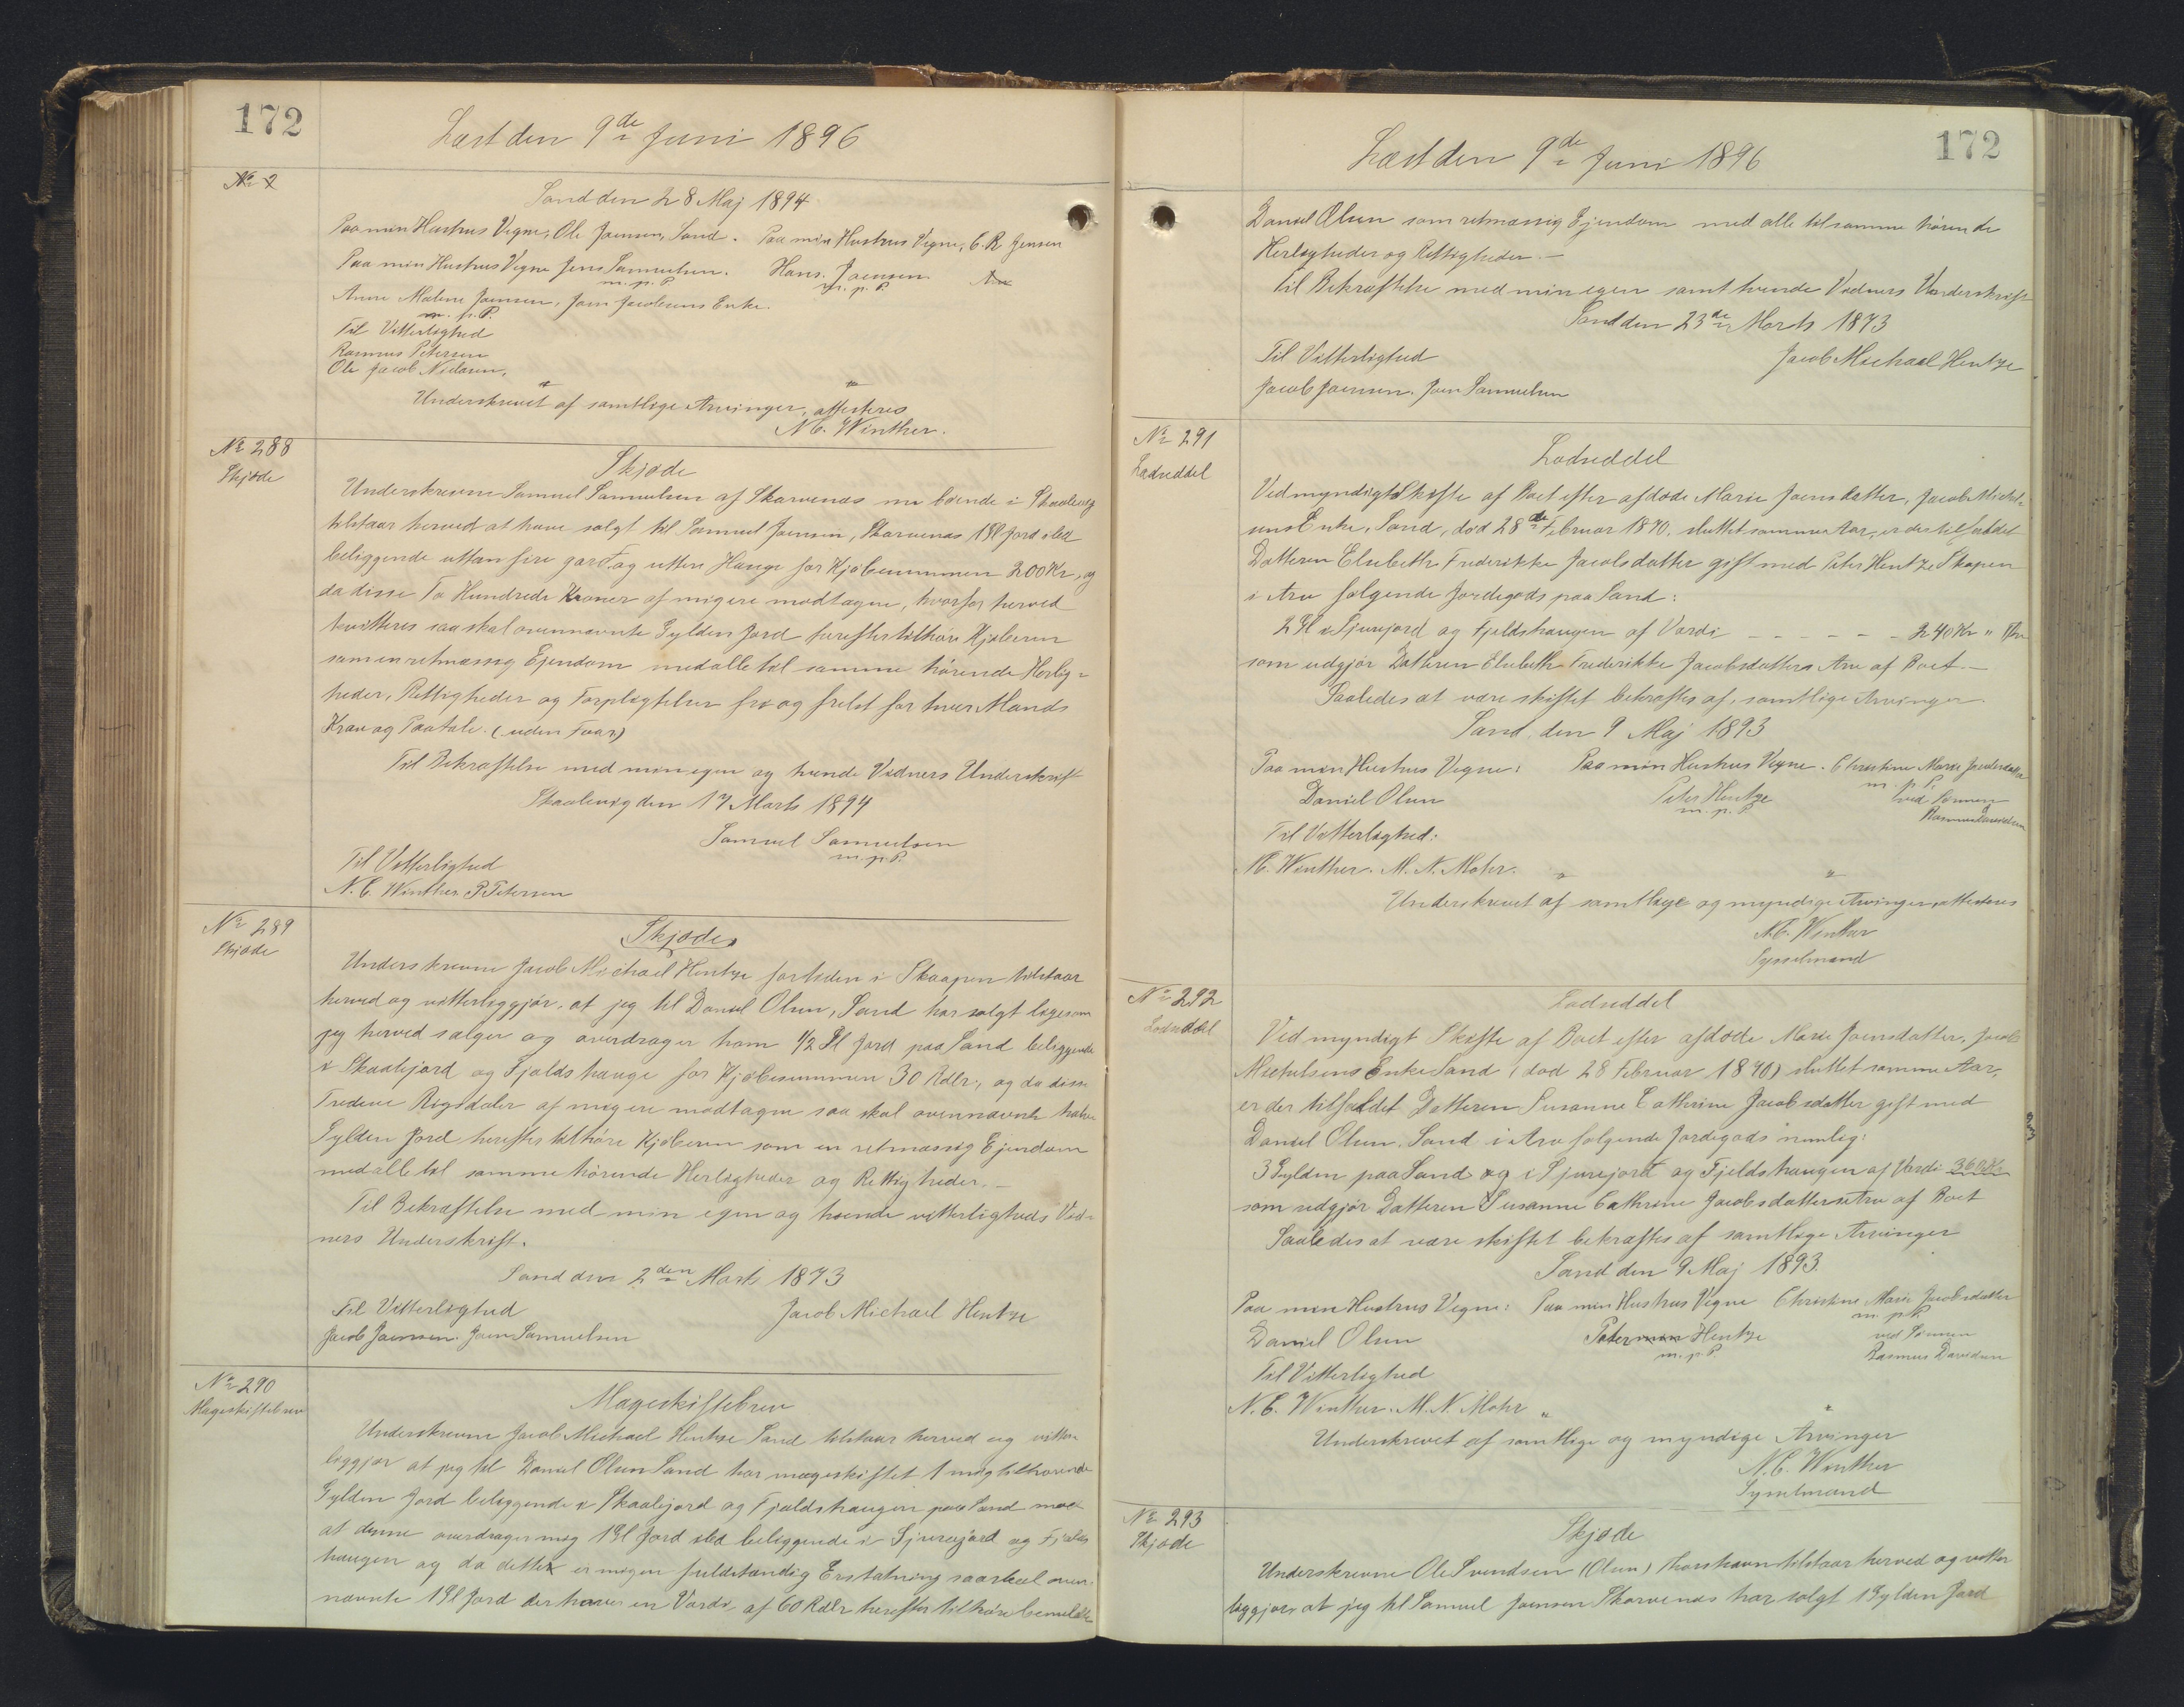 172
Læst den 9de Juni 1896
№ 2
Sand den 28 Maj 1894
Paa min Hustrus Vegne, Ole Joensen, Sand. Paa min Hustrus Vegne, C. R. Jensen
Paa min Hustrus Vegne Jens Samuelsen. Hans. Joensen.
m. p. P. m. p. P.
Anne Malene Joensen, Joen Jacobsens Enke.
m. p. P.
Til Vitterlighed
Rasmus Petersen
Ole Jacob Nielsen.
Underskrevet af samtlige Arvinger, attesteres
N. C. Winther.
№ 288
Skjøde
Skjøde
Underskrevne Samuel Samuelsen af Skarvenæs nu boende i Skaalevig
tilstaar herved at have solgt til Samuel Joensen, Skarvenæs 1 Gl Jord sted
beliggende uttan fire gard og uttere Hauge for Kjøbesummen 200 Kr, og
da disse To Hundrede Kroner af mig ere modtagne, hvorfor herved
kvitteres saa skal ovennævnte Gylden Jord herefter tilhøre Kjøberen
som en retmæssig Ejendom med alle til samme hørende Herlig=
heder, Rettigheder og Forpligtelser fri og frelst for hver Mands
Krav og Paatale. (uden Foar)
Til Bekræftelse med min egen og tvende Vidners Underskrift
Skaalevig den 17 Marts 1894
Samuel Samuelsen
m. p. P.
Til Vitterlighed
N. C. Winther P. Petersen
№ 289
Skjøde
Skjøde
Underskrevne Jacob Michael Hentze fortiden i Skaapen tilstaar
herved og vitterliggjør, at jeg til Daniel Olsen, Sand har solgt ligesom
jeg herved sælger og overdrager ham 1/2 Gl Jord paa Sand beliggende
i Skaalejord og Fjalds hauge for Kjøbesummen 30 Rdlr., og da disse
Tredive Rigsdaler af mig ere modtagne saa skal ovennævnte halve
Gylden Jord herefter tilhøre Kjøberen som en retmæssig Ejendom
med alle til samme hørende Herligheder og Rettigheder.—
Til Bekræftelse med min egen og tvende vitterligheds Vid=
ners Underskrift.
Sand den 2den Marts 1873
Til Vitterlighed Jacob Michael Hentze
Jacob Joensen. Joen Samuelsen
№ 290
Mageskiftebrev
Mageskiftebrev
Underskrevne Jacob Michael Hentze Sand tilstaar herved og vitter
liggjør at jeg til Daniel Olsen Sand har mageskiftet 1 mig tilhørende
Gylden Jord beliggende i Skaalejord og Fjaldshaugen paa Sand mod
at denne overdrager mig 1 Gl Jord sted beliggende i Sjurejord og Fjalds
haugen og da dette er mig en fuldstændig Erstatning saa skal oven
nævnte 1 Gl Jord der haver en Værdi af 60 Rdlr herefter tilhøre bemeldte
172
Læst den 9de Juni 1896
Daniel Olsen som retmæssig Ejendom med alle til samme hørende
Herligheder og Rettigheder.—
Til Bekræftelse med min egen samt tvende Vidners Underskrift
Sand den 23de Marts 1873
Til Vitterlighed Jacob Michael Hentze
Jacob Joensen. Joen Samuelsen
№ 291
Lodseddel
Lodseddel
Ved myndigt Skifte af Boet efter afdøde Marie Joensdatter, Jacob Michel=
sens Enke, Sand, død 28de Februar 1870, sluttet samme Aar, er der tilfaldet
Datteren Elsebeth Frederikke Jacobsdatter gift med Peter Hentze Skopen
i Arv følgende Jordegods paa Sand:
2 Gl i Sjurejord og Fjeldshaugen af Værdi - - - - - - 240 Kr " Øre
som udgjør Datteren Elsebeth Frederikke Jacobsdatters Arv af Boet.—
Saaledes at være skiftet bekræftes af, samtlige Arvinger.
Sand, den 9 Maj 1893
Paa min Hustrus Vegne: Paa min Hustrus Vegne. Christine Marie Jacobsdatter
m. p. P.
Daniel Olsen Peter Hentze ved Sønnen
m. p. P. Rasmus Davidsen
Til Vitterlighed:
N. C. Winther. M. N. Mohr.
Underskrevet af samtlige og myndige Arvinger, attesteres
N. C. Winther
Sysselmand
№ 292
Lodseddel
Lodseddel
Ved myndigt Skifte af Boet efter afdøde Marie Joensdatter, Jacob
Michelsens Enke Sand (død 28 Februar 1870) sluttet samme Aar,
er der tilfaldet Datteren Susanne Cathrine Jacobsdatter gift med
Daniel Olsen, Sand i Arv følgende Jordegods nemlig:
3 Gylden paa Sand og i Sjurejord og Fjeldshaugen af Værdi 360 Kr
som udgjør Datteren Susanne Cathrine Jacobsdatters Arv af Boet
Saaledes at være skiftet bekræftes af samtlige Arvinger
Sand den 9 Maj 1893.
Paa min Hustrus Vegne: Paa min Hustrus Vegne Christine Marie Jacobsdatter
m. p. P.
Daniel Olsen Peter Hentze ved Sønnen
m. p. P. Rasmus Davidsen
Til Vitterlighed
N. C. Winther. M. N. Mohr "
Underskrevet af samtlige og myndige Arvinger
N. C. Winther
Sysselmand
№ 293
Skjøde
Skjøde
Underskrevne Ole Svendsen (Olsen) Thorshavn tilstaar herved og vitter
liggjør, at jeg til Samuel Joensen Skarvenæs har solgt 1 Gylden Jord